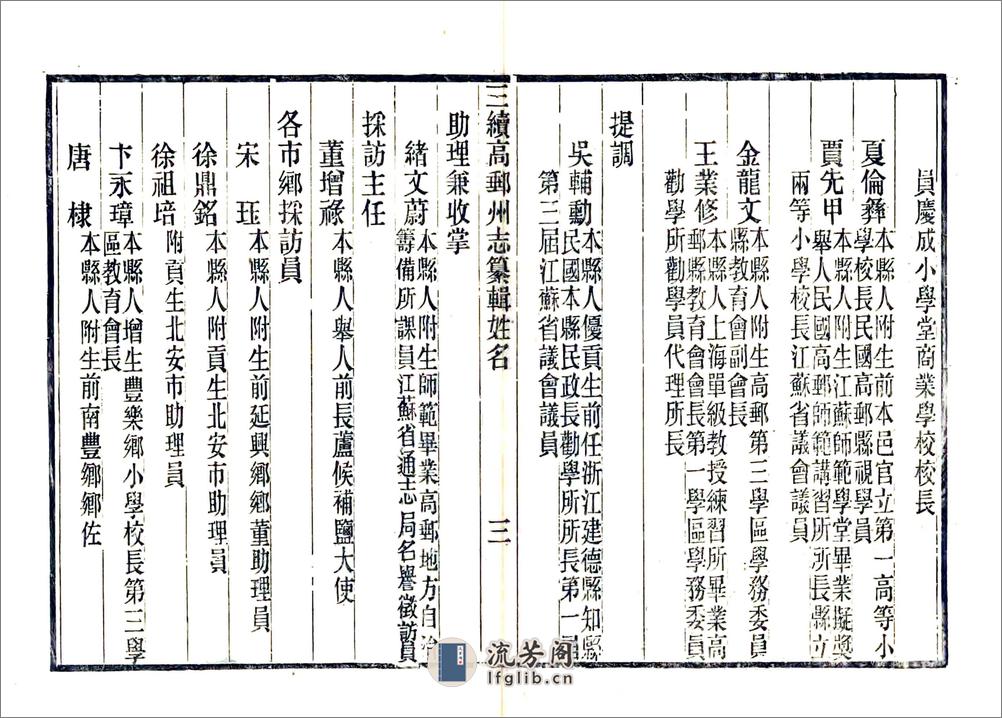 員慶成小學堂商業學校校長
夏倫彝本縣人附生前本邑官立第一高等小
學校長民國高郵縣視學員
賈先甲本縣人附生江蘇師範學堂畢業擬獎
舉人民國高郵師範講習所所長縣立
兩等小學校長江蘇省議會議員
金龍文本縣人附生高郵第三學區學務委員
縣教育會副會長
王業修本縣人上海單級教授練習所畢業高
郵縣教育會會長第一學區學務委員
勸學所勸學員代理所長
提調
吳輔勳本縣人優貢生前任浙江建德縣知縣
民國本縣民政長勸學所所長第一屆
第三屆江蘇省議會議員
三續高郵州志纂輯姓名 三
助理兼收掌
緒文蔚本縣人附生師範畢業高郵地方自治
籌備所課員江蘇省通志局名譽徵訪員
採訪主任
董增祿本縣人舉人前長蘆候補鹽大使
各市鄉採訪員
宋玨本縣人附生前延興鄉鄉董助理員
徐鼎銘本縣人附貢生北安市助理員
徐祖培附貢生北安市助理員
卞永璋本縣人增生豐樂鄉小學校長第三學
區教育會長
唐棣本縣人附生前南豐鄉鄉佐
流芳阁
lfglib.cn